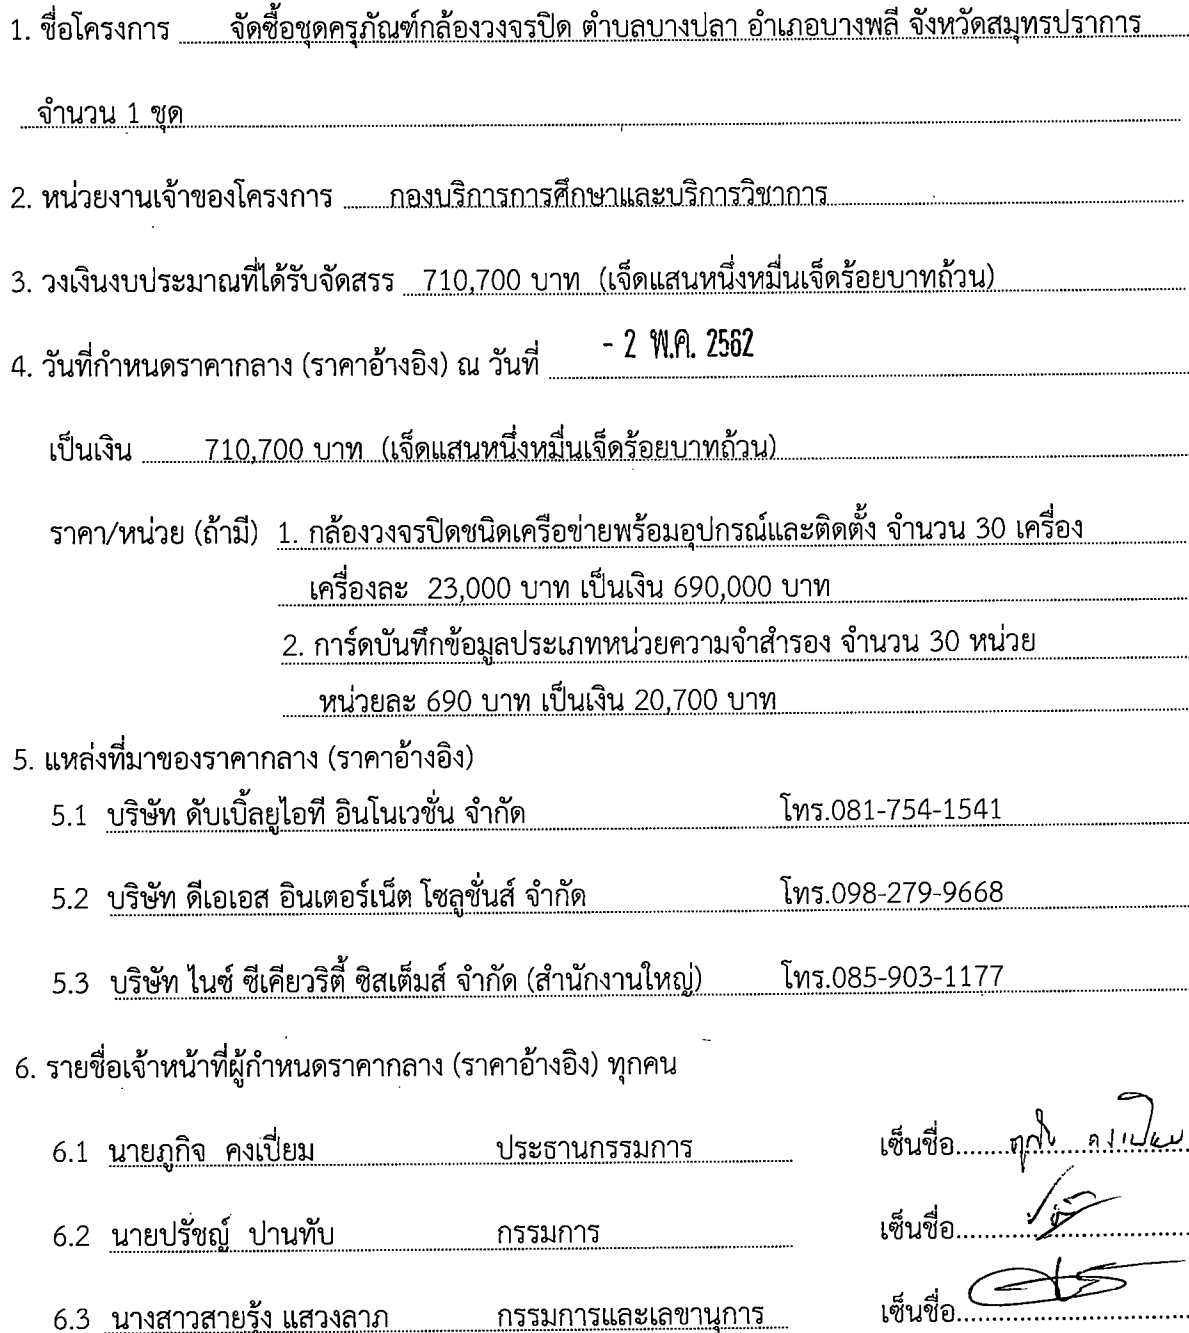 1. ชื่อโครงการ จัดซื้อชุดครุภัณฑ์กล้องวงจรปิด ตำบลบางปลา อำเภอบางพลี จังหวัดสมุทรปราการ
จำนวน 1 ชุด
2. หน่วยงานเจ้าของโครงการ กองบริการการศึกษาและบริการวิชาการ
3. วงเงินงบประมาณที่ได้รับจัดสรร 710,700 บาท (เจ็ดแสนหนึ่งหมื่นเจ็ดร้อยบาทถ้วน)
4. วันที่กำหนดราคากลาง (ราคาอ้างอิง) ณ วันที่ - 2 พ.ค. 2562
เป็นเงิน 710,700 บาท (เจ็ดแสนหนึ่งหมื่นเจ็ดร้อยบาทถ้วน)
ราคา/หน่วย (ถ้ามี) 1. กล้องวงจรปิดชนิดเครือข่ายพร้อมอุปกรณ์และติดตั้ง จำนวน 30 เครื่อง
เครื่องละ 23,000 บาท เป็นเงิน 690,000 บาท
2. การ์ดบันทึกข้อมูลประเภทหน่วยความจำสำรอง จำนวน 30 หน่วย
หน่วยละ 690 บาท เป็นเงิน 20,700 บาท
5. แหล่งที่มาของราคากลาง (ราคาอ้างอิง)
5.1 บริษัท ดับเบิ้ลยูไอที อินโนเวชั่น จำกัด โทร.081-754-1541
5.2 บริษัท ดีเอเอส อินเตอร์เน็ต โซลูชั่นส์ จำกัด โทร.098-279-9668
5.3 บริษัท ไนซ์ ซีเคียวริตี้ ซิสเต็มส์ จำกัด (สำนักงานใหญ่) โทร.085-903-1177
6. รายชื่อเจ้าหน้าที่ผู้กำหนดราคากลาง (ราคาอ้างอิง) ทุกคน
6.1 นายภูกิจ คงเปี่ยม ประธานกรรมการ เซ็นชื่อ ภูกิจ คงเปี่ยม
6.2 นายปรัชญ์ ปานทับ กรรมการ เซ็นชื่อ
6.3 นางสาวสายรุ้ง แสวงลาภ กรรมการและเลขานุการ เซ็นชื่อ